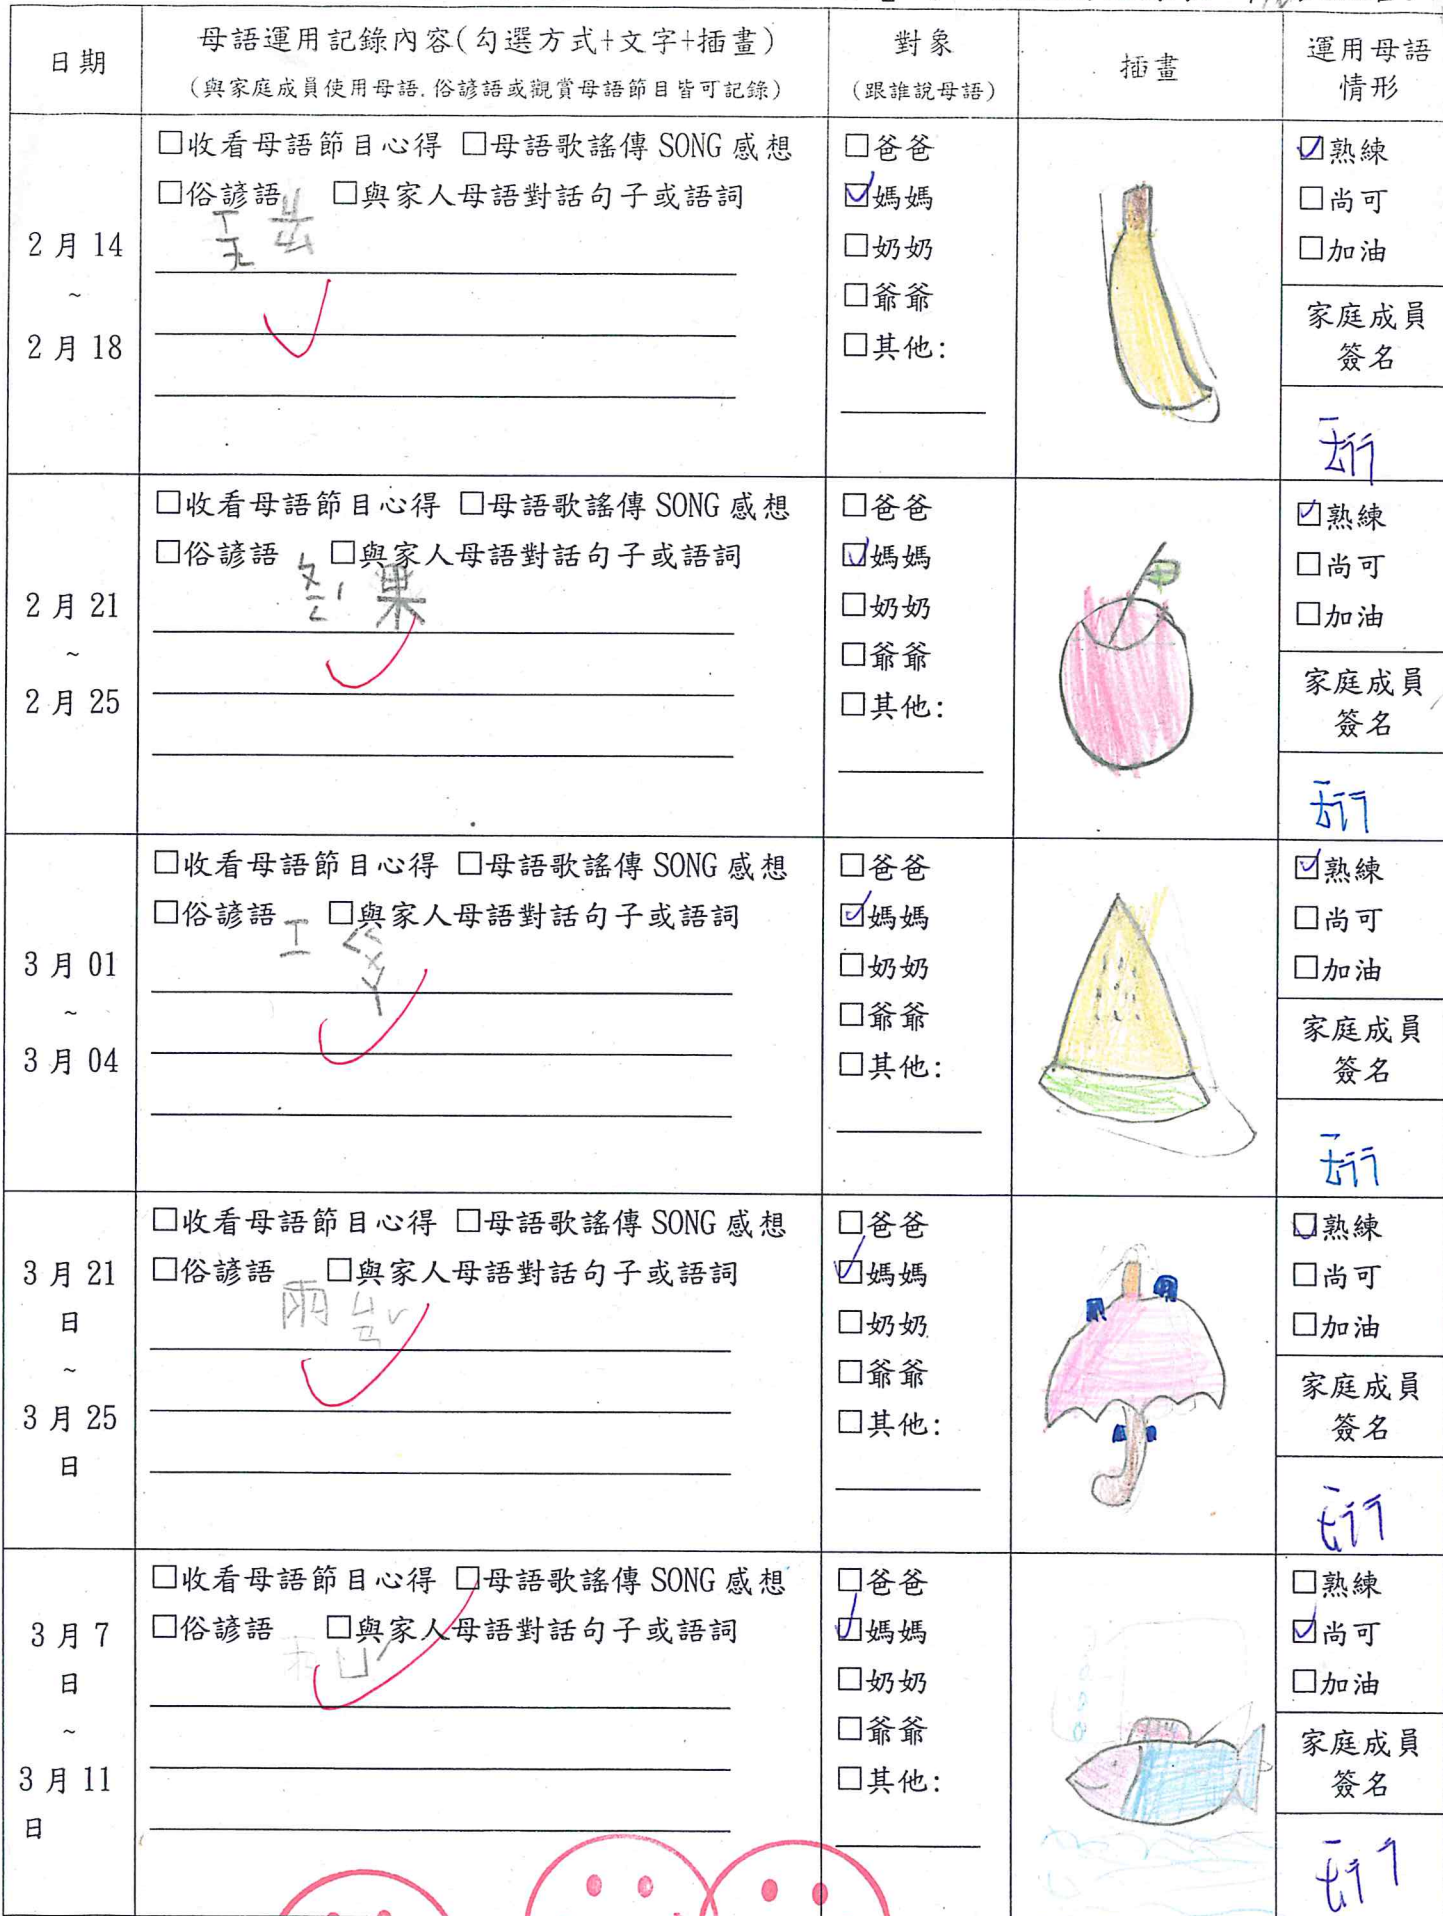 日期
母語運用記錄內容(勾選方式+文字+插畫)
(與家庭成員使用母語.俗諺語或觀賞母語節目皆可記錄)
對象
(跟誰說母語)
插畫
運用母語
情形
2月14
~
2月18
□收看母語節目心得 □母語歌謠傳 SONG 感想
□俗諺語 □與家人母語對話句子或語詞
ㄒㄧㄤ ㄐㄧㄠ
□爸爸
☑媽媽
□奶奶
□爺爺
□其他:
☑熟練
□尚可
□加油
家庭成員
簽名
2月21
~
2月25
□收看母語節目心得 □母語歌謠傳 SONG 感想
□俗諺語 □與家人母語對話句子或語詞
ㄆㄧㄥˊ 果
□爸爸
☑媽媽
□奶奶
□爺爺
□其他:
☑熟練
□尚可
□加油
家庭成員
簽名
3月01
~
3月04
□收看母語節目心得 □母語歌謠傳 SONG 感想
□俗諺語 □與家人母語對話句子或語詞
ㄒㄧ ㄍㄨㄚ
□爸爸
☑媽媽
□奶奶
□爺爺
□其他:
☑熟練
□尚可
□加油
家庭成員
簽名
3月21
日
~
3月25
日
□收看母語節目心得 □母語歌謠傳 SONG 感想
□俗諺語 □與家人母語對話句子或語詞
雨 ㄙㄢˇ
□爸爸
☑媽媽
□奶奶
□爺爺
□其他:
☑熟練
□尚可
□加油
家庭成員
簽名
3月7
日
~
3月11
日
□收看母語節目心得 □母語歌謠傳 SONG 感想
□俗諺語 □與家人母語對話句子或語詞
□爸爸
☑媽媽
□奶奶
□爺爺
□其他:
□熟練
☑尚可
□加油
家庭成員
簽名